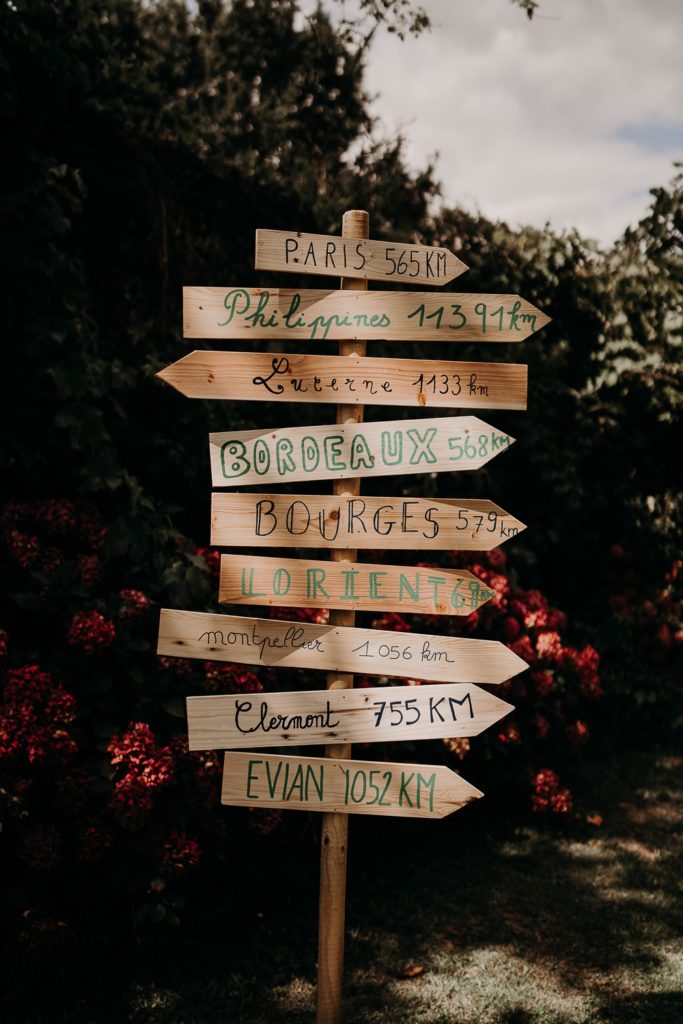 PARIS 565KM
Philippines 11391km
Lucerne 1133km
BORDEAUX 568KM
BOURGES 579km
LORIENT 68KM
montpellier 1056 km
Clermont 755 KM
EVIAN 1052KM